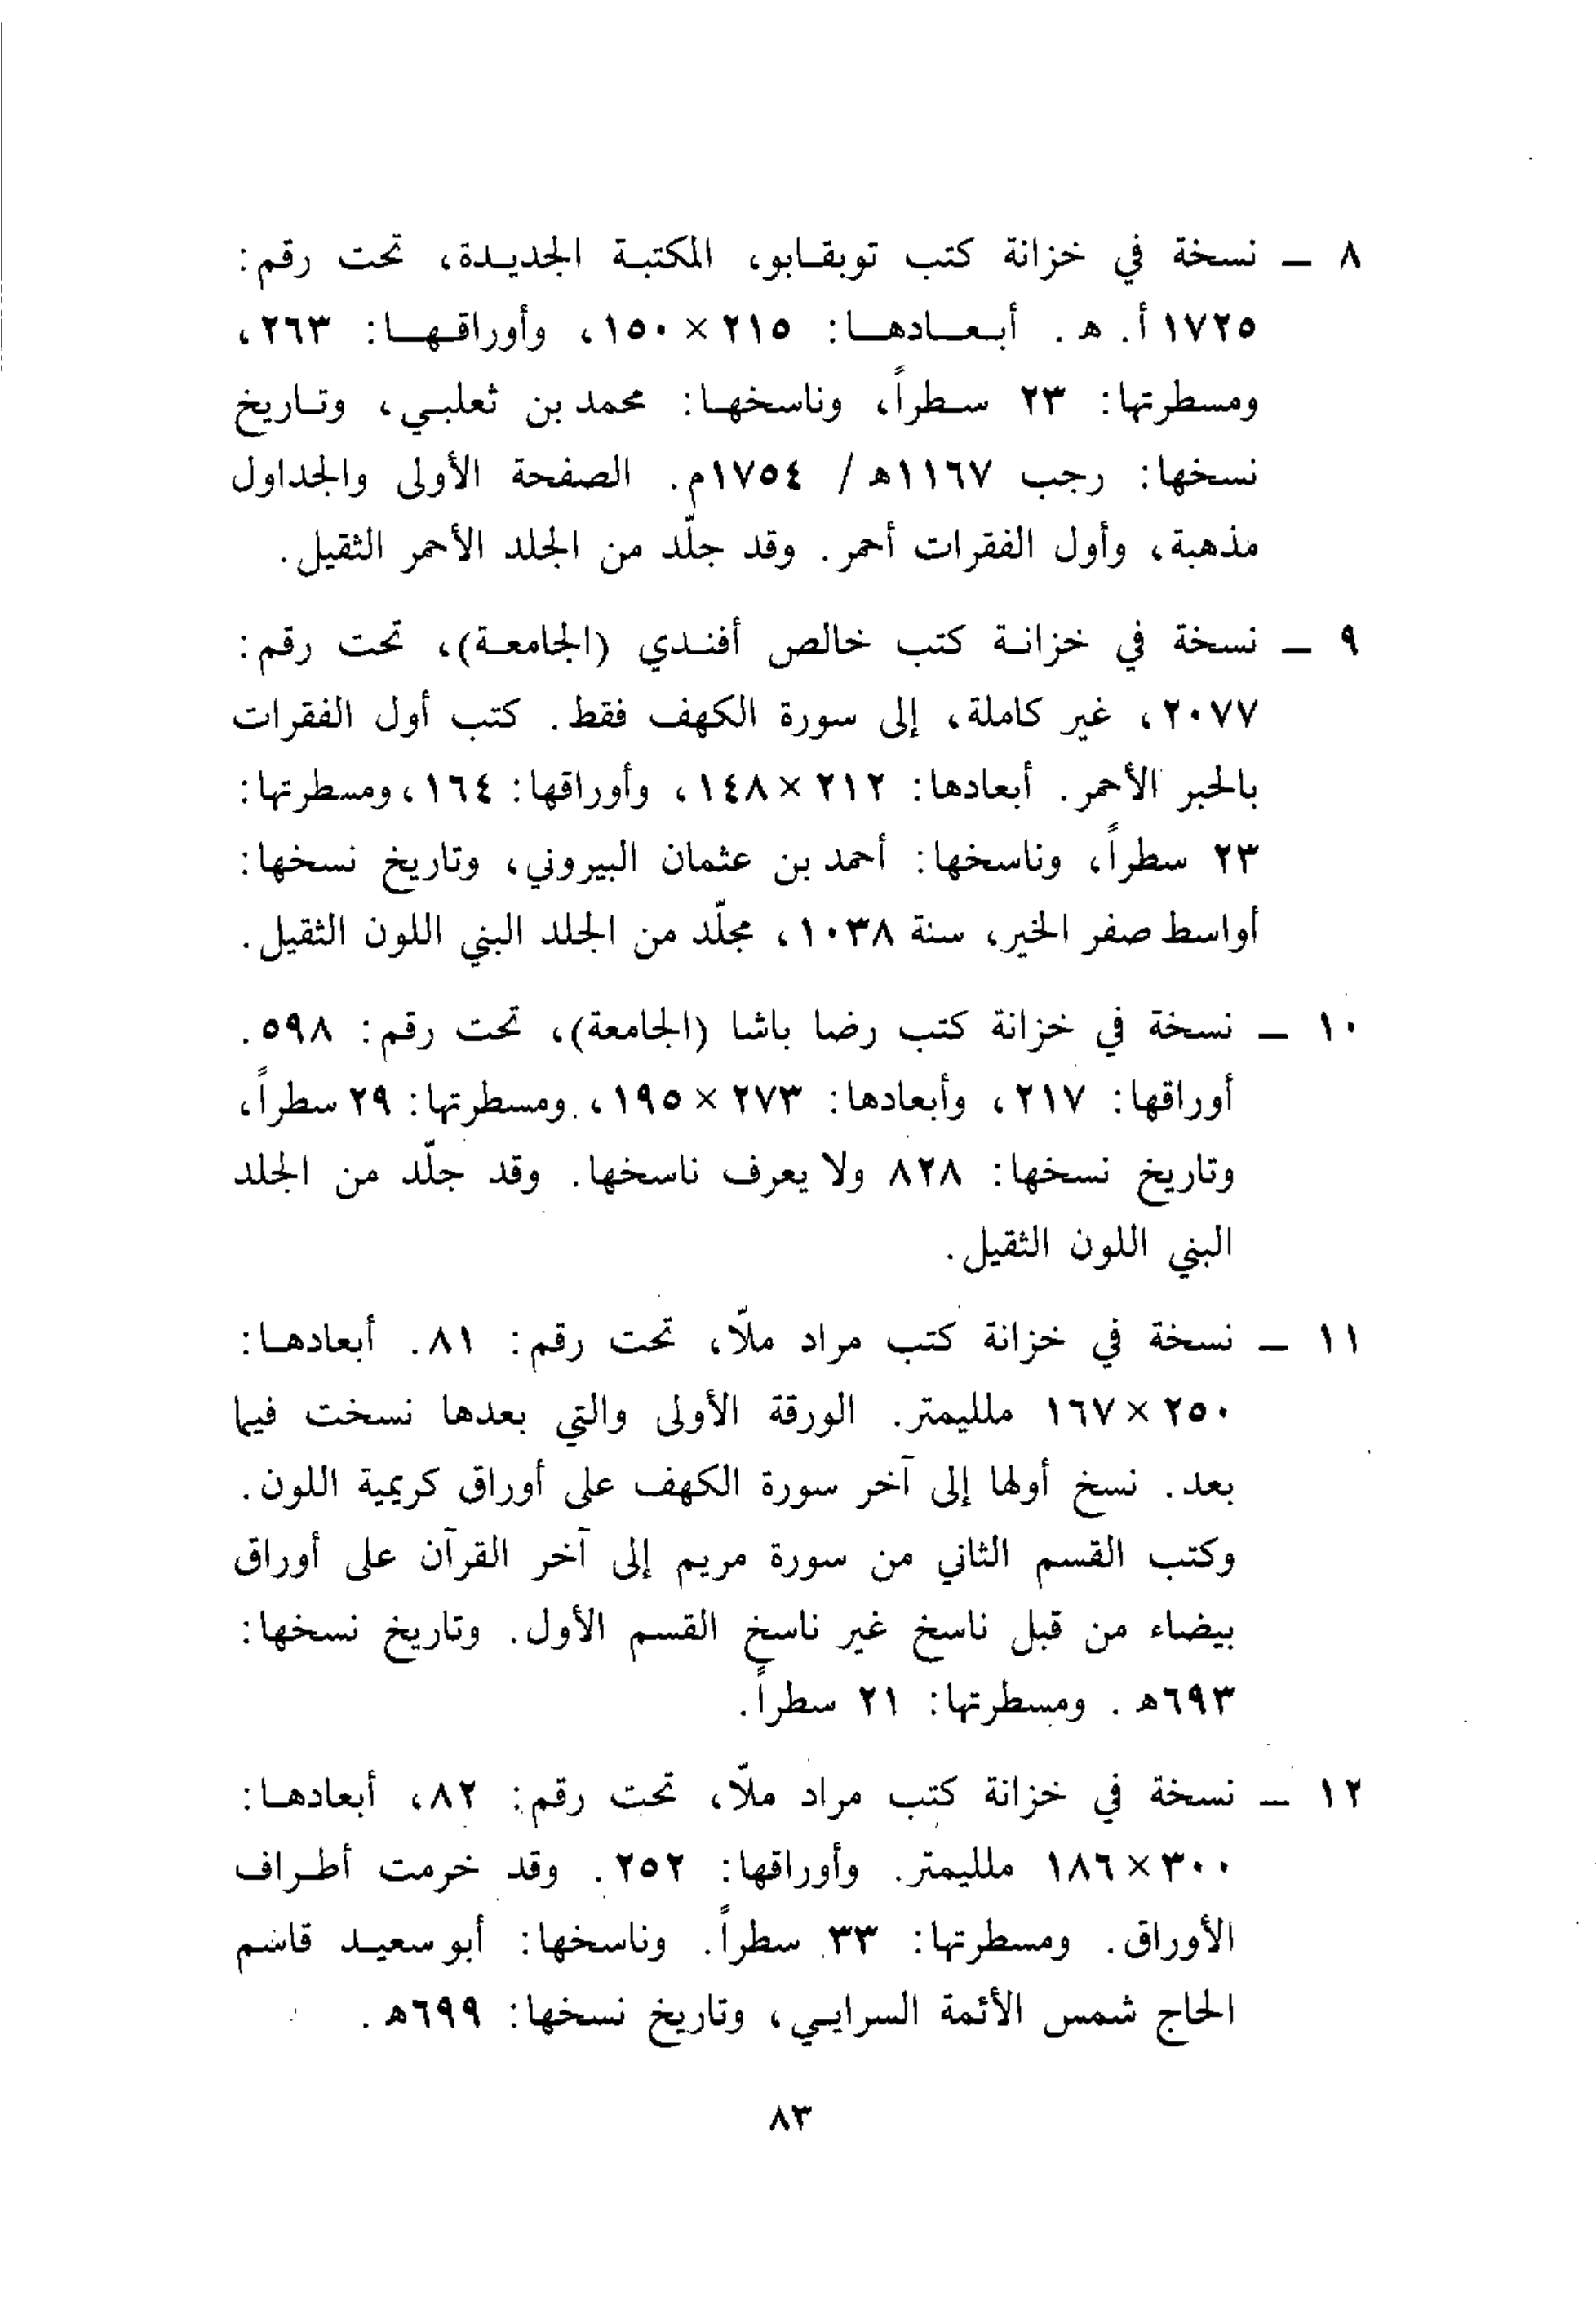 ٨ ــ نسخة في خزانة كتب توبقـابو، المكتبـة الجديـدة، تحت رقم:
١٧٢٥ أ. هـ. أبـعــادهــا: ٢١٥ × ١٥٠، وأوراقـهـا: ٢٦٣،
ومسطرتها: ٢٣ سـطراً، وناسخهـا: محمد بن ثعلبـي، وتـاريخ
نسخها: رجب ١١٦٧هـ / ١٧٥٤م. الصفحة الأولى والجداول
مذهبة، وأول الفقرات أحمر. وقد جلّد من الجلد الأحمر الثقيل.
٩ ــ نسخة في خزانـة كتب خالص أفنـدي (الجامعـة)، تحت رقم:
٢٠٧٧، غير كاملة، إلى سورة الكهف فقط. كتب أول الفقرات
بالحبر الأحمر. أبعادها: ٢١٢ × ١٤٨، وأوراقها: ١٦٤، ومسطرتها:
٢٣ سطراً، وناسخها: أحمد بن عثمان البيروني، وتاريخ نسخها:
أواسط صفر الخير، سنة ١٠٣٨، مجلّد من الجلد البني اللون الثقيل.
١٠ ــ نسخة في خزانة كتب رضا باشا (الجامعة)، تحت رقم: ٥٩٨.
أوراقها: ٢١٧، وأبعادها: ٢٧٣ × ١٩٥، ومسطرتها: ٢٩ سطراً،
وتاريخ نسخها: ٨٢٨ ولا يعرف ناسخها. وقد جلّد من الجلد
البني اللون الثقيل.
١١ ــ نسخة في خزانة كتب مراد ملّا، تحت رقم: ٨١. أبعادهـا:
٢٥٠ × ١٦٧ ملليمتر. الورقة الأولى والتي بعدها نسخت فيما
بعد. نسخ أولها إلى آخر سورة الكهف على أوراق كريمية اللون.
وكتب القسم الثاني من سورة مريم إلى آخر القرآن على أوراق
بيضاء من قبل ناسخ غير ناسخ القسم الأول. وتاريخ نسخها:
٦٩٣هـ. ومسطرتها: ٢١ سطراً.
١٢ ــ نسخة في خزانة كتب مراد ملّا، تحت رقم: ٨٢، أبعادهـا:
٣٠٠ × ١٨٦ ملليمتر. وأوراقها: ٢٥٢. وقد خرمت أطـراف
الأوراق. ومسطرتها: ٣٣ سطراً. وناسخها: أبو سعيـد قاسم
الحاج شمس الأئمة السرايـي، وتاريخ نسخها: ٦٩٩هـ.
٨٣